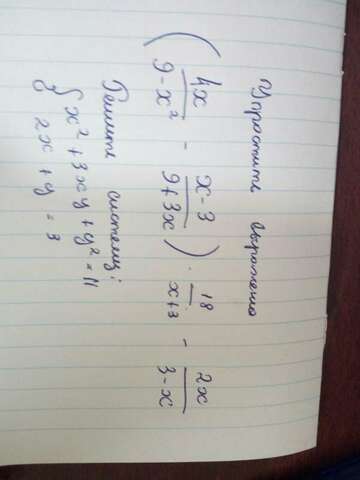 Упростите выражено
( 4x / 9-x² - x-3 / 9+3x ) · 18 / x+3 - 2x / 3-x
Решите систему:
{ x² + 3xy + y² = 11
2x + y = 3